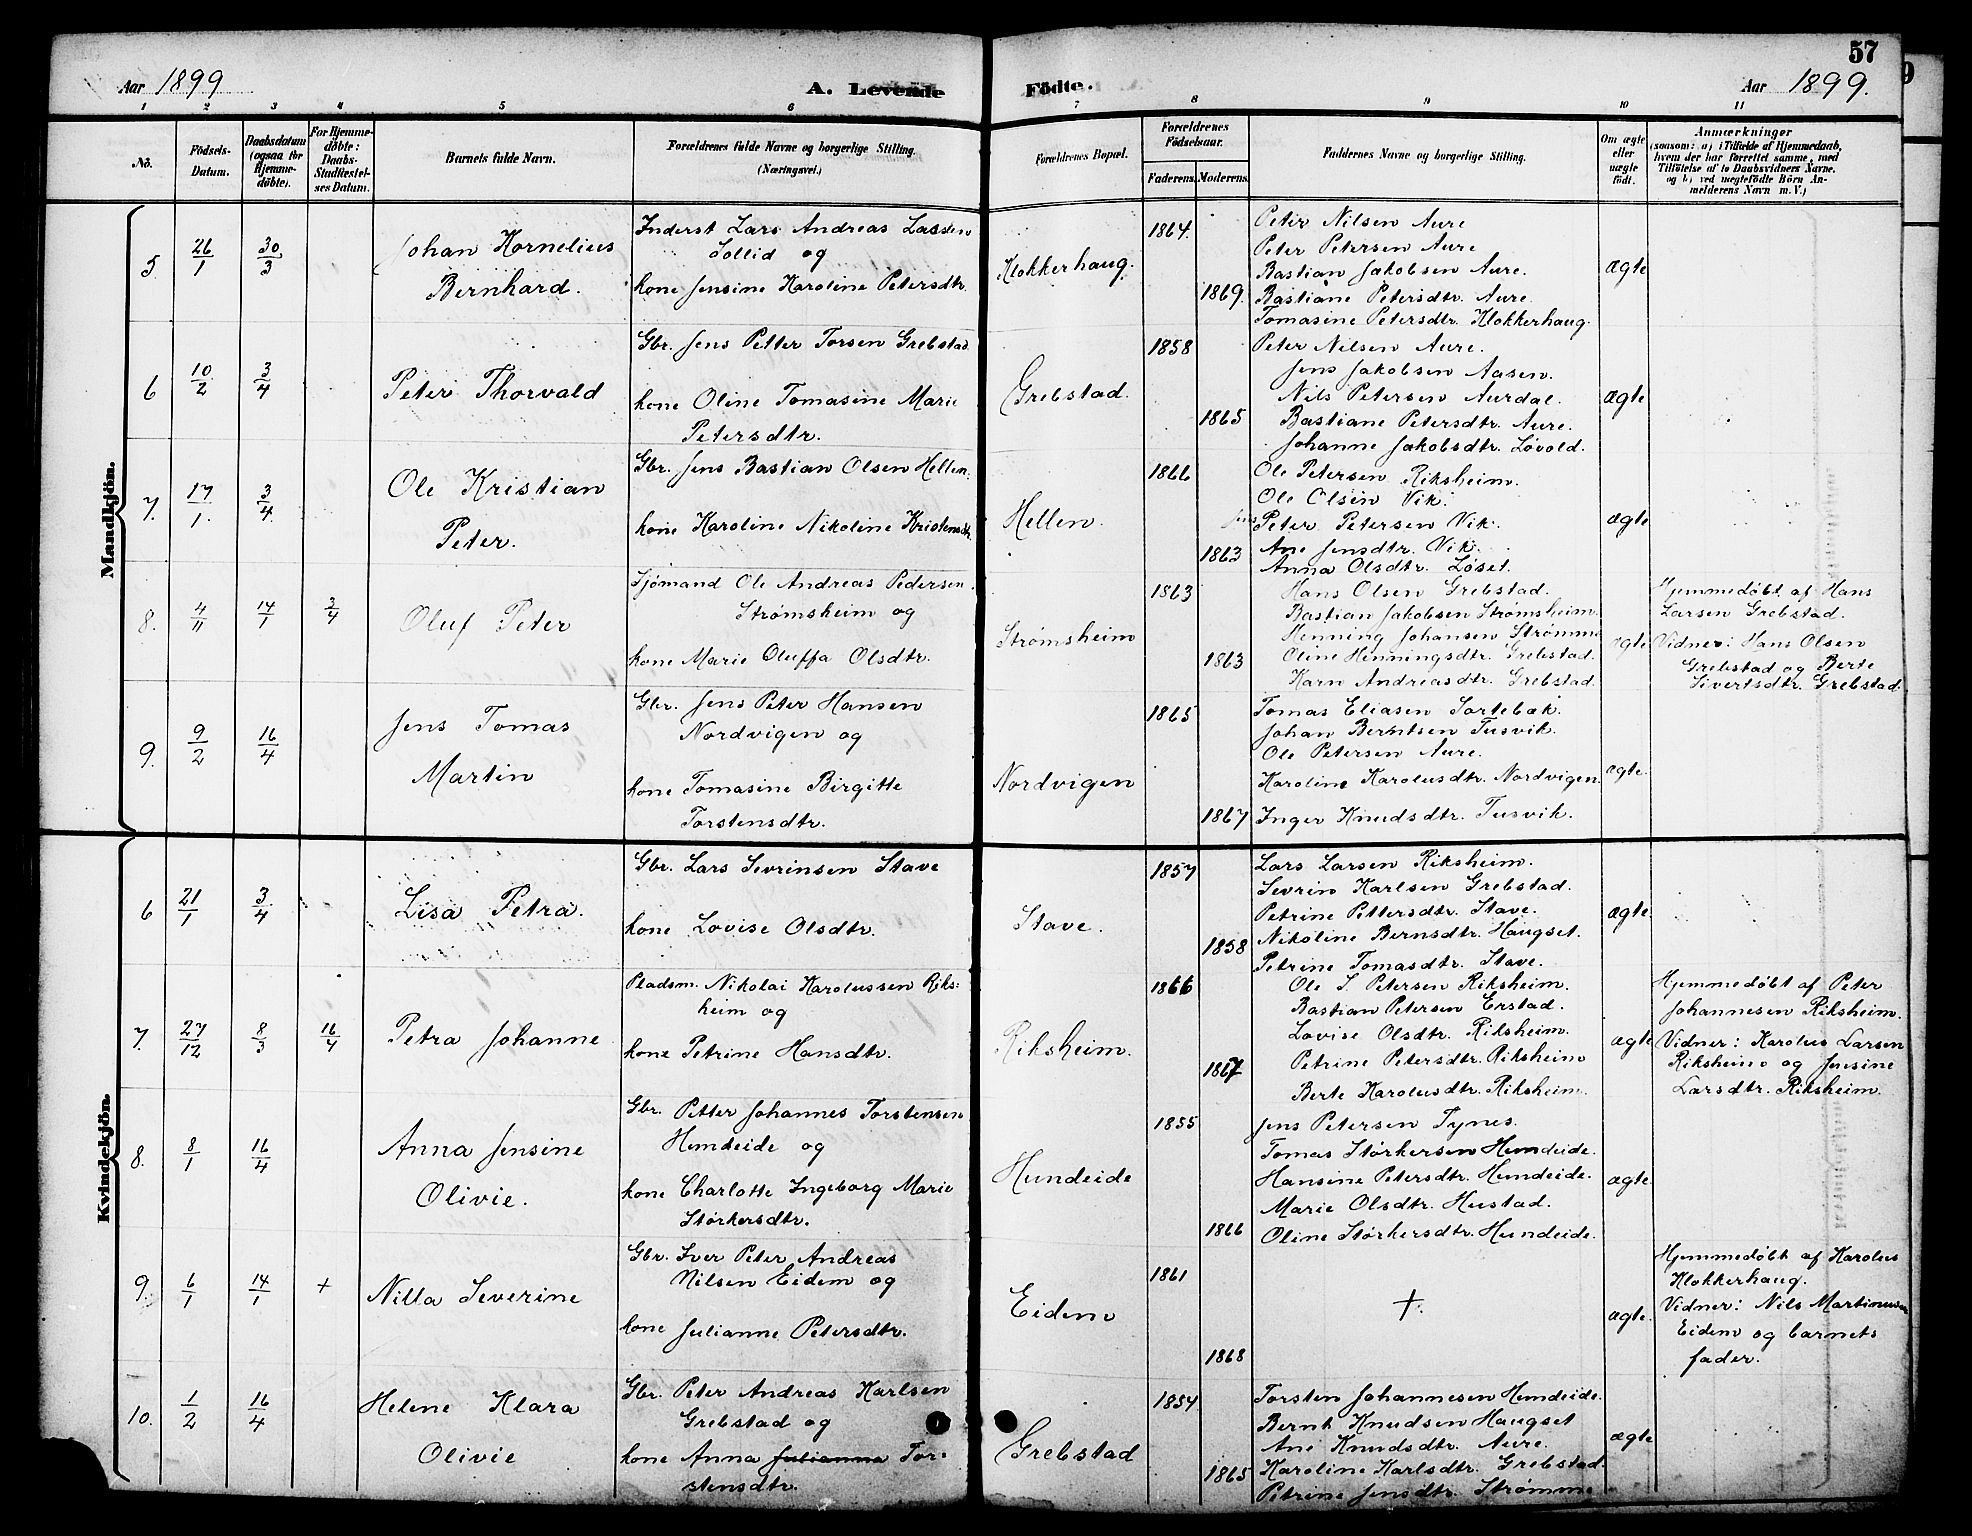 57
Aar 1899
A. Levende
Födte.
Aar 1899.
1 2 3 4 5 6 7 8 9 10 11
No.
Födsels-Datum.
Daabsdatum (ogsaa for Hjemme-döbte).
For Hjemme-döbte: Daabs-Stadfæstel-ses Datum.
Barnets fulde Navn.
Forældrenes fulde Navne og borgerlige Stilling. (Næringsvei.)
Forældrenes Bopæl.
Forældrenes Födselsaar.
Faderens. Moderens.
Faddernes Navne og borgerlige Stilling.
Om ægte eller uægte født.
Anmærkninger
(saasom: a) i Tilfælde af Hjemmedaab,
hvem der har forrettet samme, med
Tilföielse af to Daabsvidners Navne,
og b) ved uægtefödte Börn An-
melderens Navn m. V.)
Mandkjön.
5
26/1
30/3
Johan Kornelius
Bernhard.
Inderst Lars Andreas Lassen
Sollid og
kone Jensine Karoline Petersdtr.
Klokkerhaug.
1864.
1869.
Peter Nilsen Aure
Peter Petersen Aure
Bastian Jakobsen Aure.
Bastiane Petersdtr. Aure.
Tomasine Petersdtr. Klokkerhaug.
ægte
6
10/2
3/4
Peter Thorvald
Gbr. Jens Petter Torsen Grebstad
kone Oline Tomasine Marie
Petersdtr.
Grebstad.
1858
1865
Peter Nilsen Aure.
Jens Jakobsen Aasen.
Nils Petersen Aurdal.
Bastiane Petersdtr. Aure.
Johanne Jakobsdtr. Løvold.
ægte
7.
17/1.
3/4.
Ole Kristian
Peter.
Gbr. Jens Bastian Olsen Hellen.
kone Karoline Nikoline Kristensdtr.
Hellen.
1866
1863
Ole Petersen Riksheim.
Ole Olsen Vik.
Jens Peter Petersen Vik.
Ane Jensdtr. Vik.
Anna Olsdtr. Løset.
ægte
8.
4/11
14/1
3/4
Oluf Peter
Sjømand Ole Andreas Pedersen
Strømsheim og
kone Marie Oluffa Olsdtr.
Strømsheim
1863
1863
Hans Olsen Grebstad.
Bastian Jakobsen Strømsheim.
Henning Johansen Strømme
Oline Henningsdtr. Grebstad.
Karn Andreasdtr. Grebstad.
ægte
Hjemmedøbt af Hans
Larsen Grebstad.
Vidner: Hans Olsen
Grebstad og Berte
Sivertsdtr. Grebstad.
9.
9/2
16/4
Jens Tomas
Martin
Gbr. Jens Peter Hansen
Nordvigen og
kone Tomasine Birgitte
Torstensdtr.
Nordvigen
1865
1867
Tomas Eliasen Sortebæk.
Johan Berntsen Tusvik.
Ole Petersen Aure.
Karoline Karolusdtr. Nordvigen.
Inger Knudsdtr. Tusvik.
ægte.
Kvindekjön.
6
21/1
3/4
Lisa Petra.
Gbr. Lars Sevrinsen Stave
kone Lovise Olsdtr.
Stave.
1857
1858
Lars Larsen Riksheim.
Sevrin Karlsen Grebstad.
Petrine Pettersdtr. Stave.
Nikoline Bernsdtr. Haugset.
Petrine Tomasdtr. Stave.
ægte.
7.
27/12
8/3
16/4
Petra Johanne
Pladsm. Nikolai Karolussen Riks-
heim og
kone Petrine Hansdtr.
Riksheim.
1866
1867
Ole S. Petersen Riksheim.
Bastian Petersen Erstad.
Lovise Olsdtr. Riksheim.
Petrine Petersdtr. Riksheim
Berte Karolusdtr. Riksheim.
ægte
Hjemmedøbt af Peter
Johannesen Riksheim.
Vidner: Karolus Larsen
Riksheim og Jensine
Larsdtr. Riksheim.
8.
8/1
16/4
Anna Jensine
Olivie.
Gbr. Petter Johannes Torstensen
Hundeide og
kone Charlotte Ingeborg Marie
Størkersdtr.
Hundeide
1855
1866
Jens Petersen Tynes.
Tomas Størkersen Hundeide.
Hansine Petersdtr. Hundeide.
Marie Olsdtr. Hustad.
Oline Størkersdtr. Hundeide.
ægte.
9.
6/1
14/1
+
Nilla Severine
Gbr. Iver Peter Andreas
Nilsen Eidem og
kone Julianne Petersdtr.
Eidem
1861
1868
+
ægte.
Hjemmedøbt af Karolus
Klokkerhaug.
Vidner: Nils Martinusen
Eidem og barnets
fader.
10.
1/2
16/4
Helene Klara
Olivie
Gbr. Peter Andreas Karlsen
Grebstad og
kone Anna Julianna Tor-
stensdtr.
Grebstad
1854
1865
Torsten Johannesen Hundeide.
Bernt Knudsen Haugset
Ane Knudsdtr. Aure.
Karoline Karlsdtr. Grebstad.
Petrine Jensdtr. Strømme
ægte